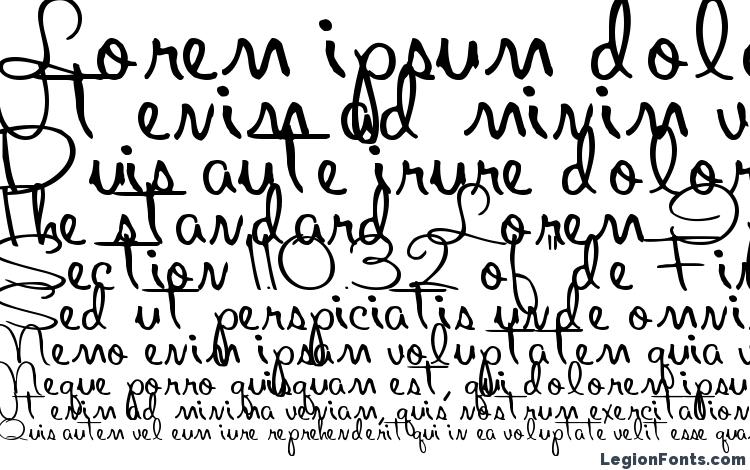 Lorem ipsum dolo
Ut enim ad minim v
Duis aute irure dolor
The standard Lorem
Section 1.10.32 of "de Fi
Sed ut perspiciatis unde omni
Nemo enim ipsam voluptatem quia v
Neque porro quisquam est, qui dolorem ipsu
Ut enim ad minima veniam, quis nostrum exercitation
Quis autem vel eum iure reprehenderit qui in ea voluptate velit esse qua
LegionFonts.com